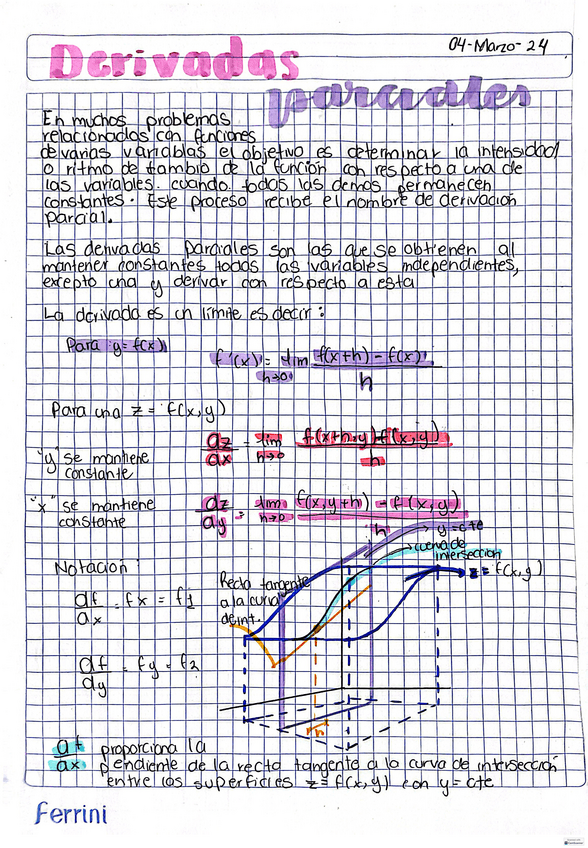 04-Marzo-24
Derivadas
parciales
En muchos problemas
relacionados con funciones
de varias variablas el objetivo es determinar la intensidad
o ritmo de cambio de la función con respecto a una de
las variables. cuando todos las demos permanecen
constantes. Este proceso recibe el nombre de derivación
parcial.
Las derivadas parciales son las que se obtienen al
mantener constantes todos las variables independientes,
exepto una y derivar con respecto a esta
La derivada es un límite es decir:
Para y=f(x)
f'(x) = lim f(x+h) - f(x)
h→0 h
Para una z = f(x,y)
"y" se mantiene
constante
∂z = lim f(x+h,y)-f(x,y)
∂x h→0 h
"x" se mantiene
constante
∂z = lim f(x,y+h) - f(x,y)
∂y h→0 h
y=cte
curva de
intersección
z=f(x,y)
Notación:
Recta tangente
a la curva
de int.
∂f = fx = f1
∂x
∂f = fy = f2
∂y
h
∂f proporciona la
∂x pendiente de la recta tangente a la curva de intersección
entre las superficies z=f(x,y) con y=cte
Ferrini